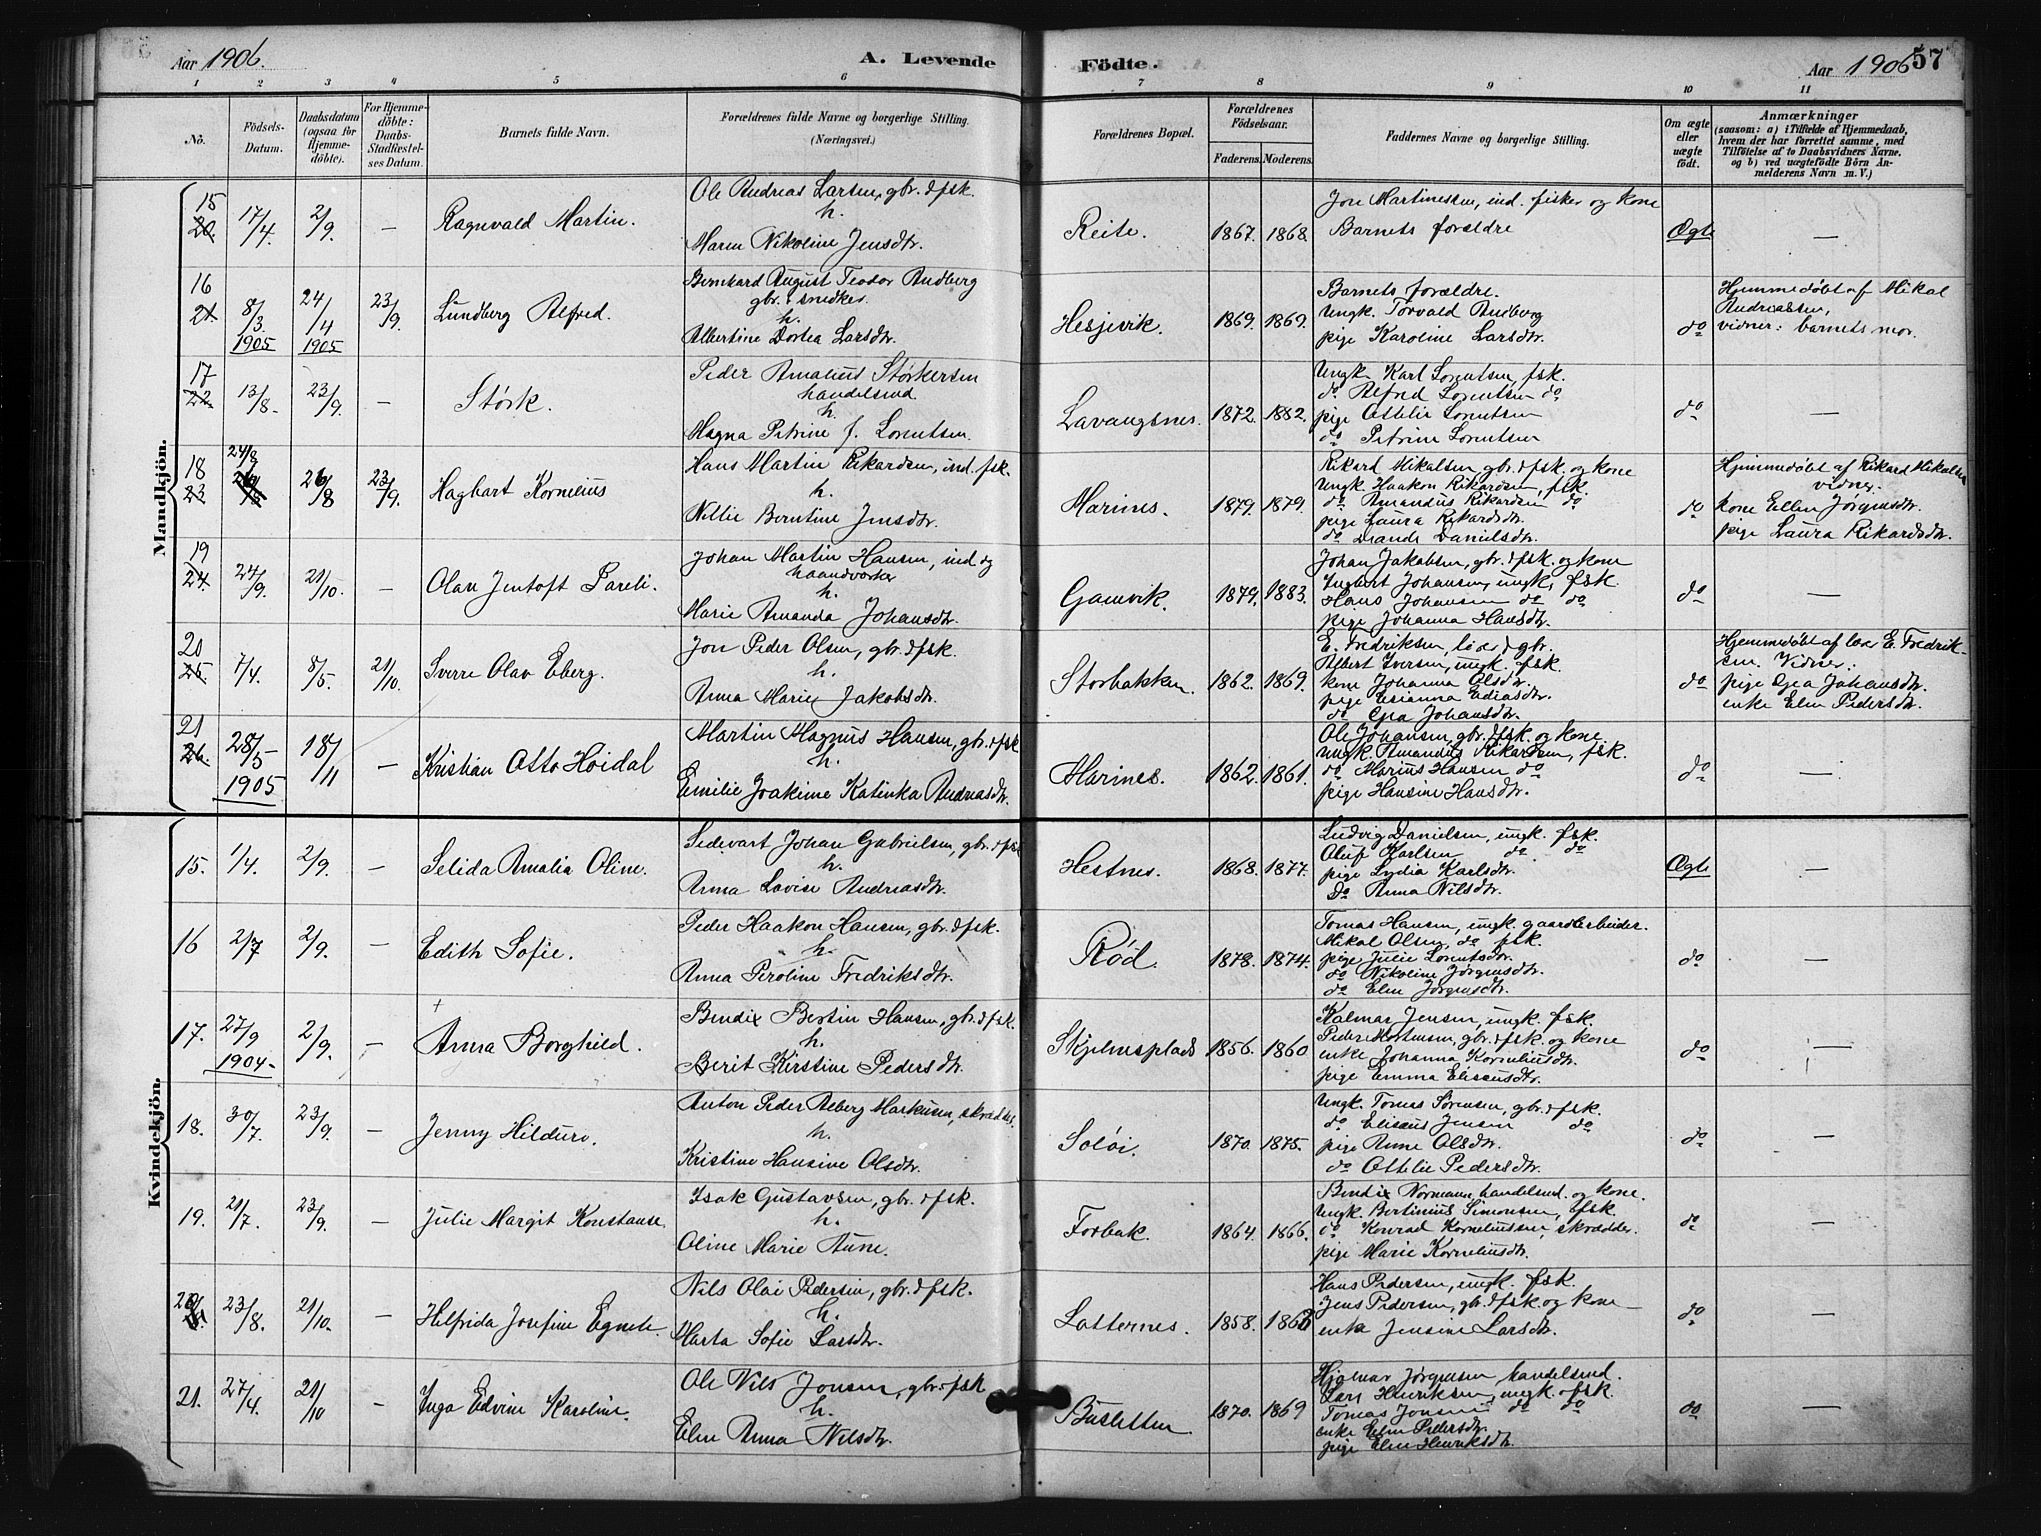 Aar 1906.
A. Levende
Födte.
Aar 1906
57
1 2 3 4 5 6 7 8 9 10 11
No.
Födsels-
Datum.
Daabsdatum
(ogsaa for
Hjemme-
döbte).
For Hjemme-
döbte:
Daabs-
Stadfæstel-
ses Datum.
Barnets fulde Navn.
Forældrenes fulde Navne og borgerlige Stilling.
(Næringsvei.)
Forældrenes Bopæl.
Forældrenes
Födselsaar.
Faderens. Moderens.
Faddernes Navne og borgerlige Stilling.
Om ægte
eller
uægte
født.
Anmærkninger
(saasom: a) i Tilfælde af Hjemmedaab,
hvem der har forrettet samme, med
Tilföielse af to Daabsvidners Navne,
og b) ved uægtefödte Börn An-
melderens Navn m. V.)
Mandkjön.
15
20.
17/4. 2/9. —
Ragnvald Martin.
Ole Andreas Larsen, gbr. & fsk.
h.
Maren Nikoline Jensdtr.
Reite.
1867. 1868.
Jon Martinessen, ind. fisker og kone
Barnets forældre
Ægte
—
16
21.
8/3. 1905
24/4 1905
23/9.
Lundberg Alfred.
Bernhard August Teodor Rudberg
gbr. & snedker.
h.
Albertine Dortea Larsdtr.
Hesjevik.
1869. 1869.
Barnets forældre.
Ungk. Torvald Rudberg
pige Karoline Larsdtr.
do
Hjemmedøbt af Mikal
Andreassen,
vidner: barnets mor.
17
22
13/8. 23/9. —
Størk.
Peder Amalius Størkersen
handelsmd
h.
Magna Petrine f. Lorentsen.
Lavangsnes.
1872. 1882.
Ungk. Karl Lorentsen, fsk.
do Alfred Lorentsen do
pige Ottilie Lorentsen
do Petrine Lorentsen
do
—
18
23
24/8
26/8 23/9.
Hagbart Kornelius
Hans Martin Rikardsen, ind. fsk.
h.
Nellie Berntine Jensdtr.
Marines.
1879. 1879.
Rikard Mikalsen, gbr. & fsk. og kone
Ungk. Haakon Rikardsen, fsk.
do Amandus Rikardsen do
pige Laura Rikardsdtr.
do Danielsdtr.
do
Hjemmedøbt af Rikard Mikalsen
vidner.
kone Ellen Jørgensdtr.
pige Laura Rikardsdtr.
19
24.
24/9. 21/10. —
Olav Jentoft Pareli.
Johan Martin Hansen, ind og
haandverker
h.
Marie Amanda Johansdtr.
Gamvik.
1879. 1883.
Johan Jakobsen, gbr. & fsk. og kone
Ingbart Johansen, ungk, fsk.
Hans Johansen do do
pige Johanna Hansdtr.
do
—
20
25.
7/4. 8/5. 21/10.
Sverre Olav Eberg.
Jon Peder Olsen, gbr. & fsk.
h.
Anna Marie Jakobsdtr.
Storbakken.
1862. 1869.
E. Fredriksen, lærer & gbr.
Albert Iversen, ungk. fsk.
kone Johanna Olsdtr.
pige Esianna Ediasdtr.
do Gea Johansdtr.
do
Hjemmedøbt af lær E. Fredrik-
sen. Vidner:
pige Gea Johansdtr.
enke Elen Pedersdtr.
21
26.
28/5 1905
18/11
—
Kristian Otto Høidal
Martin Magnus Hansen, gbr. & fsk
h.
Emilie Joakime Katinka Andreasdtr.
Marines.
1862. 1861.
Ole Johansen, gbr. & fsk. og kone
Ungk. Amandus Rikardsen, fsk.
do Marius Hansen do
pige Hansine Hansdtr.
do
—
Kvindekjön.
15. 1/4. 2/9. —
Selida Amalia Oline.
Sedevart Johan Gabrielsen, gbr. & fsk
h.
Anna Lovise Andreasdtr.
Hestnes.
1868. 1877.
Ludvig Danielsen, ungk. fsk.
Oluf Karlsen do do
pige Lydia Karlsdtr.
Do Anna Nilsdtr.
Ægte
—
16 2/7 2/9. —
Edith Sofie.
Peder Haakon Hansen, gbr. & fsk.
h.
Anna Peroline Fredriksdtr.
Rød.
1878. 1874.
Tomas Hansen, ungk. gaardarbeider.
Mikal Olsen, do fsk.
pige Julie Lorentsdtr.
do Nikoline Jørgensdtr.
do Elen Jørgensdtr.
do
—
17. 27/9 1904 2/9. —
†
Anna Borghild.
Bendix Bertin Hansen, gbr. & fsk.
h.
Berit Kirstine Pedersdtr.
Skjelnesplads
1856. 1860
Kalmar Jensen, ungk. fsk.
Peder Mortensen, gbr. & fsk. og kone
enke Johanna Korneliusdtr.
pige Emma Eliseusdtr.
do
—
18. 30/7. 23/9. —
Jenny Hildur.
Anton Peder Aeberg Markusen, skrædder.
h.
Kristine Hansine Olsdtr.
Soløi.
1870. 1875.
Ungk. Tomas Sørensen, gbr. & fsk.
do Eliseus Jensen do
pige Anne Olsdtr.
do Ottilie Pedersdtr.
do
—
19. 21/7. 23/9. —
Julie Margit Konstanse.
Isak Gustavsen, gbr. & fsk.
h.
Oline Marie Aune.
Forbak.
1864. 1866.
Bendix Normann, handelsmd. og kone.
Ungk. Bertinius Simonsen, fsk.
do Konrad Korneliussen, skrædder.
pige Marie Korneliusdtr.
do
—
20. 23/8. 21/10. —
Helfrida Josefine Egnete.
Nils Olai Pedersen, gbr. & fsk.
h.
Marta Sofie Larsdtr.
Latternes.
1858.
Hans Pedersen, ungk. fsk.
Jens Pedersen, gbr. & fsk. og kone
enke Jensine Larsdtr.
do
—
21. 27/4. 21/10 —
Inga Edvine Karoline.
Ole Nils Jonsen, gbr. & fsk
h.
Elen Anna Nilsdtr.
Busletten
1870. 1869
Hjalmar Jørgensen, handelsmd.
Lars Henriksen, ungk. fsk.
Tomas Jonsen do do
enke Elen Pedersdtr.
pige Elen Henriksdtr.
do
—